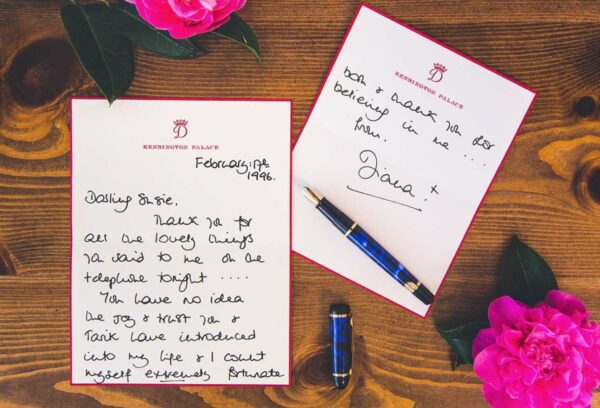 D
KENSINGTON PALACE
February: 17th
1996.
Darling Susie,
Thank you for
all the lovely things
you said to me on the
telephone tonight ....
You have no idea
the joy & trust you &
Tarik have introduced
into my life & I count
myself extremely fortunate
D
KENSINGTON PALACE
both & thank you for
believing in me ....
from,
Diana. +